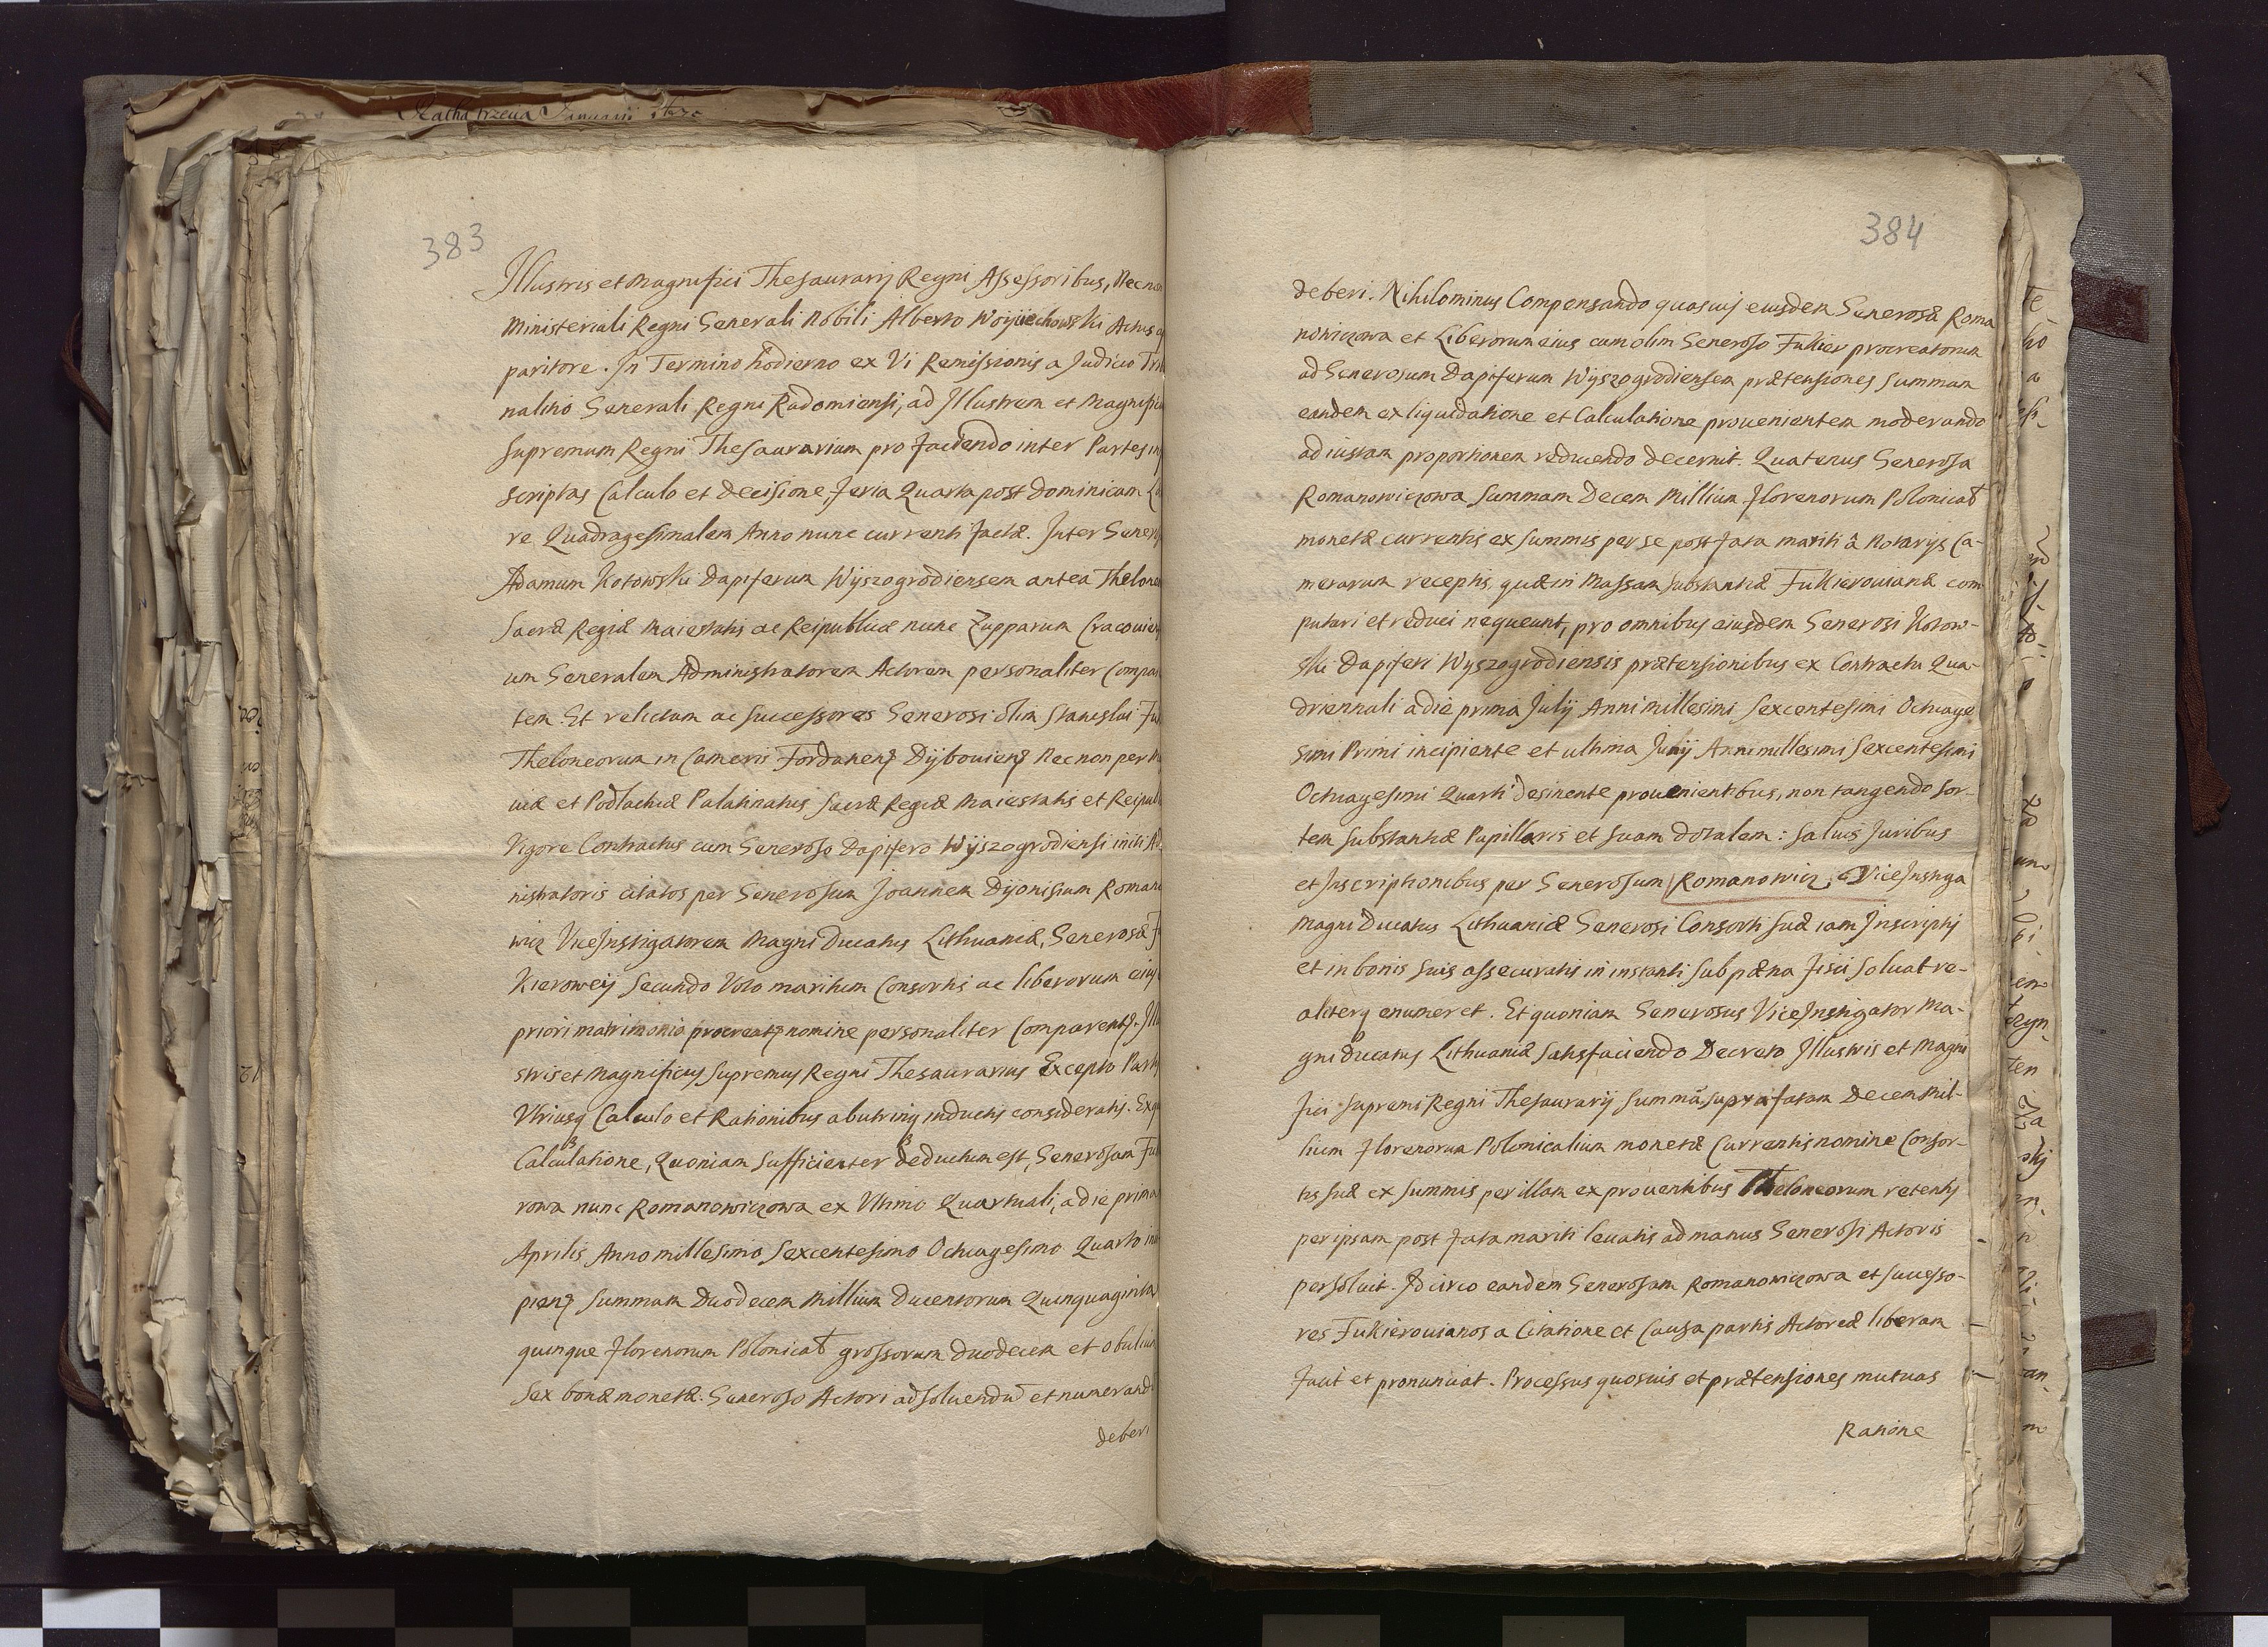 383
Illustris et Magnifici Thesaurarij Regni Assessoribus, Nec non
Ministeriali Regni Generali Nobili Alberto Woyciechowski Actus
paritore. In Termino hodierno ex Vi Remissionis a Judicio Tri
nalitio Generali Regni Radomiensi, ad Illustrem et Magnific
Supremum Regni Thesaurarium pro faciendo inter Partes in
scriptas Calculo et Decisione, feria Quarta post Dominicam
re Quadragesimalem Anno nunc currenti factæ. Inter Genero
Adamum Kotowski Dapiferum Wyszogrodiensem antea Thelone
Sacræ Regiæ Maiestatis ac Reipublicæ nunc Zupparum Cracovien
um Generalem Administratorem Actorem personaliter Compar
tem. Et relictam ac Successores Generosi olim Stanislai Fu
Theloneorum in Cameris Fordanen Dijbovien Nec non per
uiæ et Podlachiæ Palatinatus Sacræ Regiæ Maiestatis et Reipub
Vigore Contractus cum Generoso Dapifero Wyszogrodiensi initi Ad
nistratoris citatos per Generosum Joannem Dijonisium Romano
wicz ViceInstigatorem Magni Ducatus Lithuaniæ, Generosæ F
Kierowey Secundo Voto maritum Consortis ac liberorum eius
priori matrimonio procreat nomine personaliter Comparent. Illu
stris et Magnificus Supremus Regni Thesaurarius Excepto Partis
Vtriusq Calculo et Rationibus ab utrinq inductis consideratis. Ex
Calculatione, Quoniam Sufficienter deductum est, Generosam Fu
rowa nunc Romanowiczowa ex Vltimo Quartuali, a die prima
Aprilis Anno millesimo Sexcentesimo Octuagesimo Quarto in
pien Summam Duodecem Millium Ducentorum Quinquaginta
quinque florenorum Polonical grossorum duodecem et obulum
Sex bonæ monetæ. Generoso Actori adsoluendu et numerand
deberi
384
deberi. Nihilominus Compensando quasuis eiusdem Generosæ Roma
nowiczowa et Liberorum eius cum olim Generoso Fukier procreatorum
ad Generosum Dapiferum Wyszogrodiensem prætensiones Summam
eandem ex liquidatione et Calculatione prouenientem moderando
ad iustam proportionem reducendo decernit. Quatenus Generosa
Romanowiczowa Summam Decem Millium florenorum Polonical
monetæ currentis ex summis per se post fata mariti â Notarijs Ca-
merarum receptis, quæ in Massam substantiæ Fukierouianæ com
putari et reduci nequeunt, pro omnibus eiusdem Generosi Kotow-
ski Dapiferi Wyszogrodiensis prætensionibus ex Contractu Qua-
driennali a die prima Julij Anni millesimi Sexcentesimi Octuage
simi Primi incipiente et ultima Junij Anni millesimi Sexcentesimi
Octuagesimi Quarti desinente prouenientibus, non tangendo for-
tem substantiæ Pupillaris et suam dotalem: saluis Juribus
et Inscriptionibus per Generosum Romanowicz ViceInstiga
Magni Ducatus Lithuaniæ Generosi Consorti suæ iam Inscriptis
et in bonis suis assecuratis in instanti sub pæna fisci soluat re-
aliterq enumeret. Et quoniam Generosus ViceInstigator Ma-
gni Ducatus Lithuaniæ Satisfaciendo Decreto Illustris et Magni
fici Supremi Regni Thesaurarij summa supra fatam Decem Mil-
lium florenorum Polonicalium monetæ Currentis nomine Consor-
tis suæ ex summis per illam ex prouentibus Theloneorum retentis
per ipsam post fata mariti leuatis ad manus Generosi Actoris
persoluit. Idcirco eandem Generosam Romanowiczowa et Successo-
res Fukierouianos a Citatione et Causa partis Actoreæ liberam
facit et pronunciat. Processus quosuis et prætensiones mutuas
Ratione